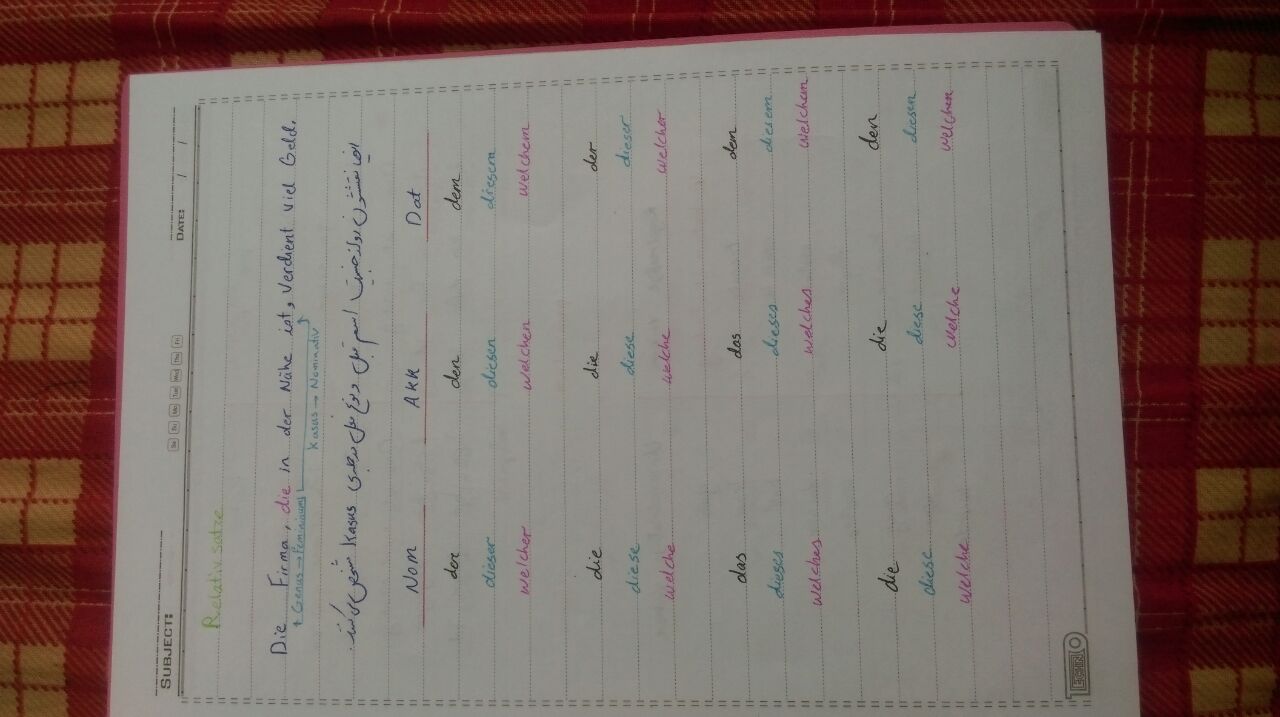 SUBJECT:
Sa Su Mo Tue Wed Thu Fri
DATE: / /
Relativ sätze
Die Firma, die in der Nähe ist, Verdient viel Geld.
Genus → Femininum Kasus → Nominativ
اسم قبل و نوع فعل بعدی Kasus
Nom Akk Dat
der den dem
dieser diesen diesem
welcher welchen welchem
die die der
diese diese dieser
welche welche welcher
das das dem
dieses dieses diesem
welches welches welchem
die die den
diese diese diesen
welche welche welchen